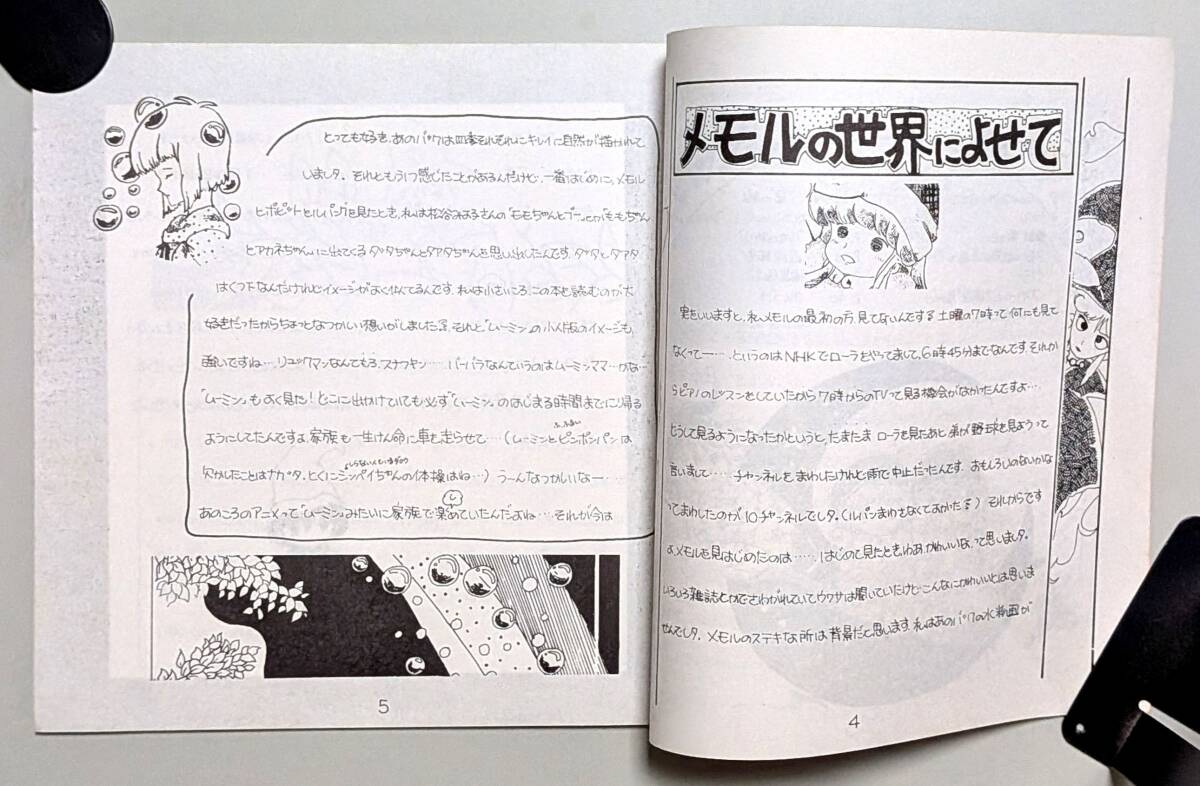 メモルの世界によせて
実をいいますと、私、メモルの最初の方、見てないんですョ 土曜の7時って何にも見て
なくってー…、というのはNHKでローラをやってまして、6時45分までなんです。それか
らピアノのレッスンをしていたから7時からのTVって見る機会がなかったんですよ…
どうして見るようになったかというと、たまたま ローラを見たあと、弟が野球を見ようって
言いまして…… チャンネルを、まわしたけれど雨で中止だったんです。おもしろしのないかな
ってまわしたのが、10チャンネルでした。(ルパンまわさなくてよかった) それからです
よメモルを見はじめたのは……、はじめて見たとき、わぁ、かわいいな、って思いました。
いろいろ雑誌とかでさわがれていて、ウワサは聞いていたけど、こんなにかわいいとは思いま
せんでした。メモルのステキな所は背景だと思います。私はあのバックの水彩画が
4
とっても好き、あのバックは四季それぞれにキレイに自然が描かれて
いました。それともう1つ感じたことがあるんだけど、一番はじめに、メモル
とポピットとルパングを見たとき、私は松谷みよ子さんの「モモちゃんとプー」とか「ももちゃん
とアカネちゃん」に出てくるタッタちゃんとタアタちゃんを思い出したんです。タッタ、タアタ
はくつ下なんだけれどイメージがよく似てるんです。私は小さいころ、この本を読むのが大
好きだったからちょっとなつかしい想いがしました。それと「ムーミン」の小人版のイメージも、
強いですね…、リュックマンなんてもろ、スナフキン…… バーバラなんていうのはムーミンママ…かな…
「ムーミン」もよく見た! どこに出かけていても必ず「ムーミン」のはじまる時間までに帰る
ようにしてたんですよ、家族も一生けん命に車を走らせて…(ムーミンとピンポンパンは
欠かしたことはナカッタ、とくにシンペイちゃんの体操はね…) う〜んなつかしいなー……
あのころのアニメって「ムーミン」みたいに家族で楽しめていたんだよね…… それが今は
5